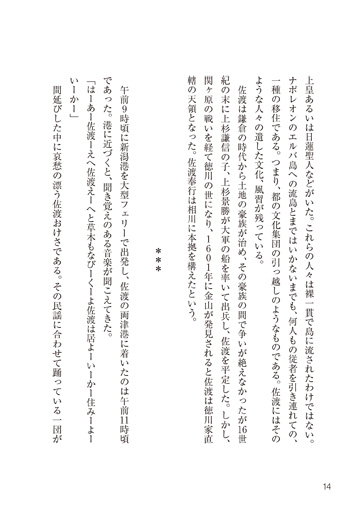 上皇あるいは日蓮聖人などがいた。これらの人々は裸一貫で島に流されたわけではない。
ナポレオンのエルバ島への流島とまではいかないまでも、何人もの従者を引き連れての、
一種の移住である。つまり、都の文化集団の引っ越しのようなものである。佐渡にはその
ような人々の遺した文化、風習が残っている。
佐渡は鎌倉の時代から土地の豪族が治め、その豪族の間で争いが絶えなかったが16世
紀の末に上杉謙信の子、上杉景勝が大軍の船を率いて出兵し、佐渡を平定した。しかし、
関ヶ原の戦いを経て徳川の世になり、1601年に金山が発見されると佐渡は徳川家直
轄の天領となった。佐渡奉行は相川に本拠を構えたという。
＊＊＊
午前9時頃に新潟港を大型フェリーで出発し、佐渡の両津港に着いたのは午前11時頃
であった。港に近づくと、聞き覚えのある音楽が聞こえてきた。
「はーあー佐渡ーえへ佐渡えーへと草木もなびーくーよ佐渡は居よーいーかー住みーよー
いーかー」
間延びした中に哀愁の漂う佐渡おけさである。その民謡に合わせて踊っている一団が
14